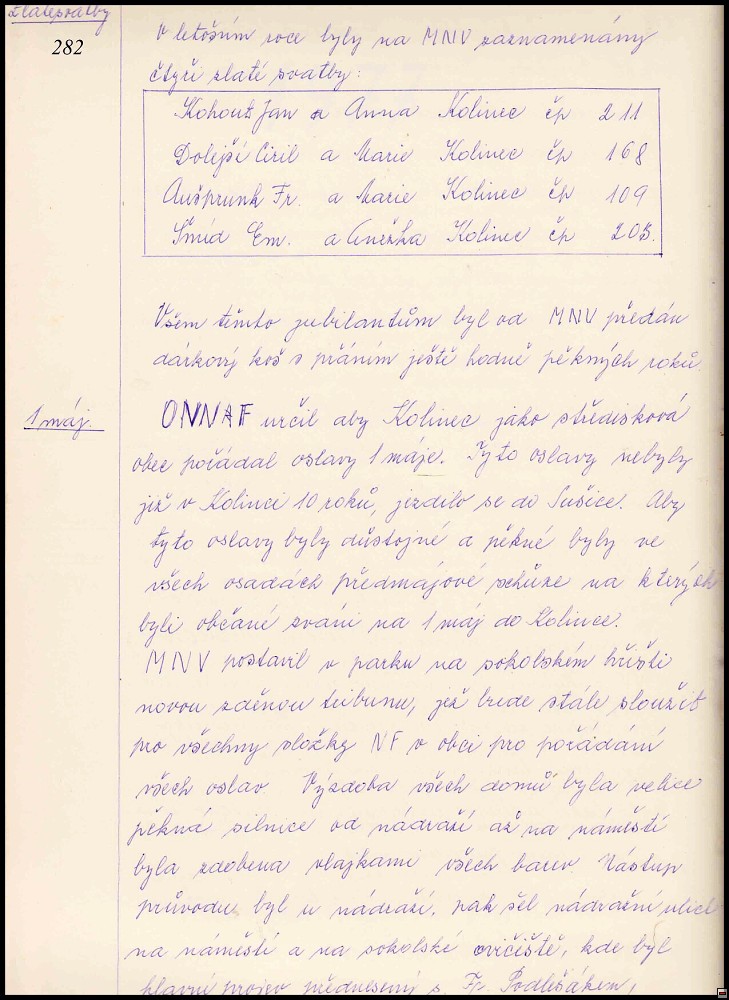 Zlaté svatby
282
V letošním roce byly na MNV zaznamenány
čtyři zlaté svatby:
Kohout Jan a Anna Kolinec čp 211
Dolejší Ciril a Marie Kolinec čp 168
Aušprunk Fr. a Marie Kolinec čp 109
Šmíd Em. a Anežka Kolinec čp 203.
Všem těmto jubilantům byl od MNV předán
dárkový koš s přáním ještě hodně pěkných roků.
1 máj.
ONV určil aby Kolinec jako středisková
obec pořádal oslavy 1 máje. Tyto oslavy nebyly
již v Kolinci 10 roků, jezdilo se do Sušice. Aby
tyto oslavy byly důstojné a pěkné byly ve
všech osadách předmájové schůze na kterých
byli občané zváni na 1 máj do Kolince.
MNV postavil v parku na sokolském hřišti
novou zděnou tribunu, jež bude stále sloužit
pro všechny složky NF v obci pro pořádání
všech oslav. Výzdoba všech domů byla velice
pěkná silnice od nádraží až na náměstí
byla zdobena vlajkami všech barev. Nástup
průvodu byl u nádraží, pak šel nádražní ulicí
na náměstí a na sokolské cvičiště, kde byl
hlavní projev přednesený s. Fr. Podlišákem,